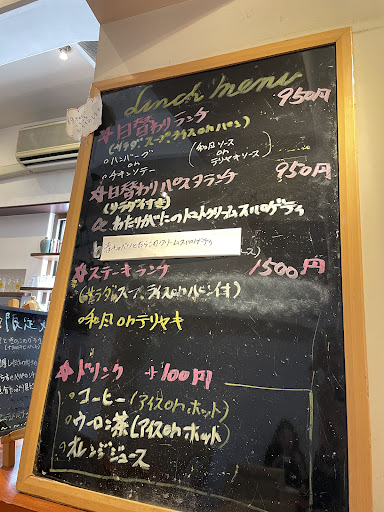 Lunch menu
日替わりランチ 950円
(サラダ スープ ライス or パン)
ハンバーグ (和風ソース
or or
チキンソテー テリヤキソース)
日替わりパスタランチ 950円
(サラダ付き)
a わたりがにのトマトクリームスパゲティ
b
ース)
ステーキランチ 1500円
(サラダ スープ ライス or パン付)
和風 or テリヤキ
ドリンク +100円
コーヒー(アイス or ホット)
ウーロン茶(アイス or ホット)
オレンジジュース
限定